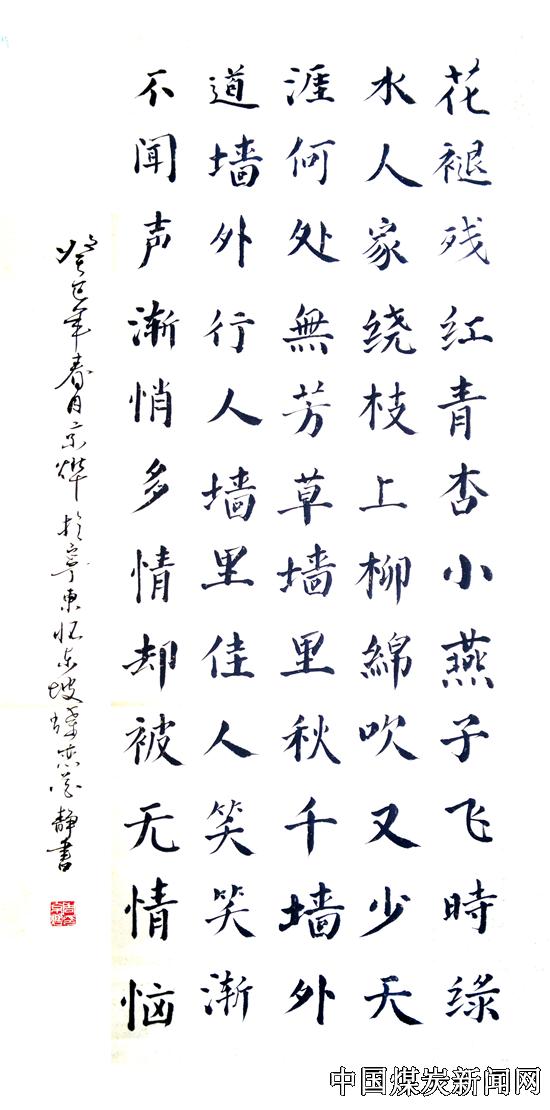 花褪残红青杏小燕子飞時绿
水人家绕枝上柳綿吹又少天
涯何处無芳草墙里秋千墙外
道墙外行人墙里佳人笑笑渐
不闻声渐悄多情却被无情恼
癸巳年春月京烨於寧東怀东坡蝶恋花静書
中国煤炭新闻网